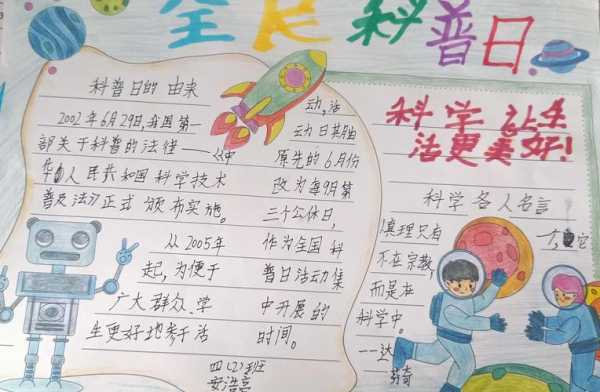 全民科普日
科普日的由来
2002年6月29日,我国第一
部关于科普的法律——《中
华人民共和国科学技术
普及法》正式颁布实施。
从2005年
起,为便于
广大群众、学
生更好地参于活
动,活
动日其由
原先的6月份
改为每9月第
三个公休日,
作为全国科
普日活动集
中开展的
时间。
四(2)班
科学让生
活更美好!
科学名人名言
真理只有一个,它
不在宗教,
而是在
科学中。
——达
芬奇